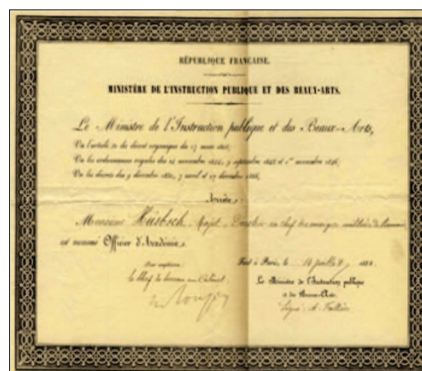 RÉPUBLIQUE FRANÇAISE.
MINISTÈRE DE L'INSTRUCTION PUBLIQUE ET DES BEAUX-ARTS.
Le Ministre de l'Instruction publique et des Beaux-Arts,
Vu l'article 32 du décret organique du 17 mars 1808,
Vu les ordonnances royales des 14 novembre 1844, 9 septembre 1845 et 1er novembre 1846,
Vu les décrets des 9 décembre 1850, 7 avril et 27 décembre 1866,
Arrête:
Monsieur Hübsch, Major, Directeur en chef des musiques militaires de Roumanie
est nommé Officier d'Académie.
Pour ampliation:
Fait à Paris, le 14 juillet 188
Le Chef de bureau au Cabinet,
Le Ministre de l'Instruction publique
et des Beaux-Arts.
Signé: A. Fallières